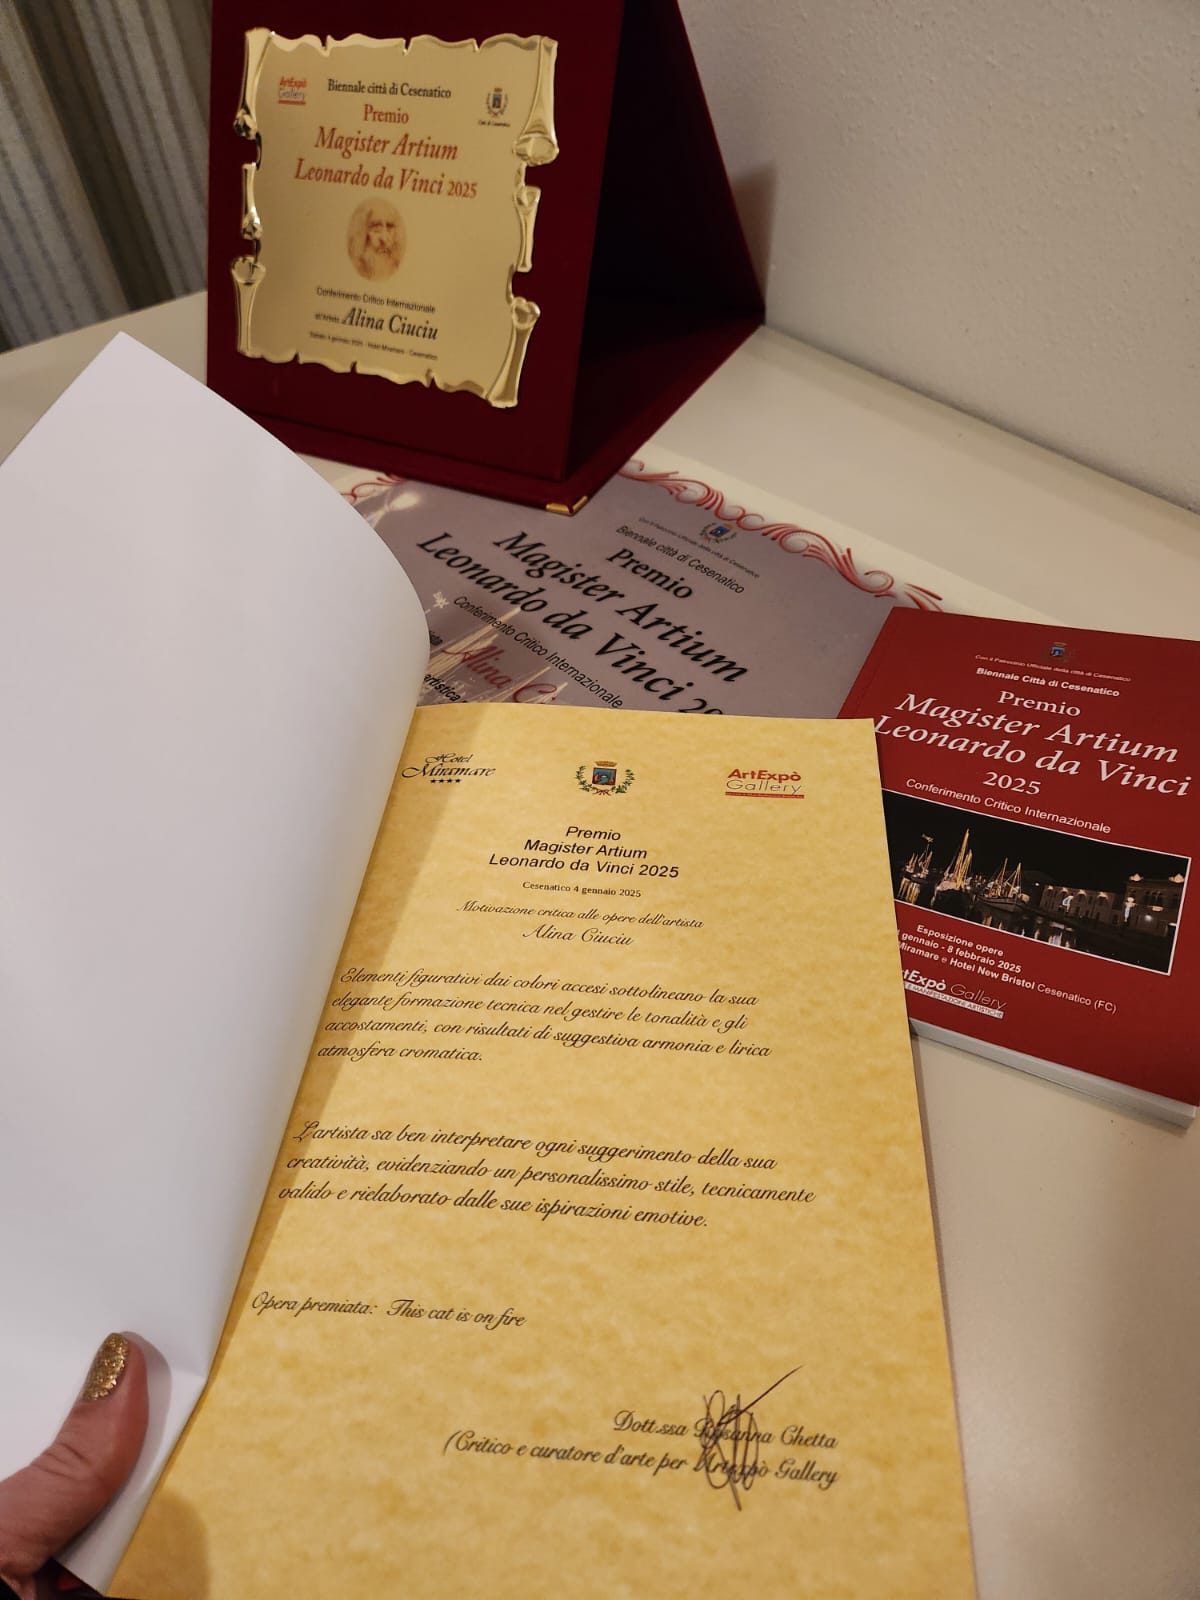 ArtExpò
Gallery
Biennale città di Cesenatico
Premio
Magister Artium
Leonardo da Vinci 2025
Conferimento Critico Internazionale
all'Artista Alina Ciuciu
Sabato 4 gennaio 2025 - Hotel Miramare - Cesenatico
Con il Patrocinio Ufficiale della città di Cesenatico
Biennale città di Cesenatico
Premio
Magister Artium
Leonardo da Vinci 20
Conferimento Critico Internazionale
Alina Ci
artistica
Con il Patrocinio Ufficiale della città di Cesenatico
Biennale Città di Cesenatico
Premio
Magister Artium
Leonardo da Vinci
2025
Conferimento Critico Internazionale
Esposizione opere
gennaio - 8 febbraio 2025
Miramare e Hotel New Bristol Cesenatico (FC)
rtExpò Gallery
E MANIFESTAZIONI ARTISTICHE
Hotel
Miramare
ArtExpò
Gallery
Premio
Magister Artium
Leonardo da Vinci 2025
Cesenatico 4 gennaio 2025
Motivazione critica alle opere dell'artista
Alina Ciuciu
Elementi figurativi dai colori accesi sottolineano la sua
elegante formazione tecnica nel gestire le tonalità e gli
accostamenti, con risultati di suggestiva armonia e lirica
atmosfera cromatica.
L'artista sa ben interpretare ogni suggerimento della sua
creatività, evidenziando un personalissimo stile, tecnicamente
valido e rielaborato dalle sue ispirazioni emotive.
Opera premiata: This cat is on fire
Dott.ssa Rosanna Chetta
(Critico e curatore d'arte per Artexpò Gallery